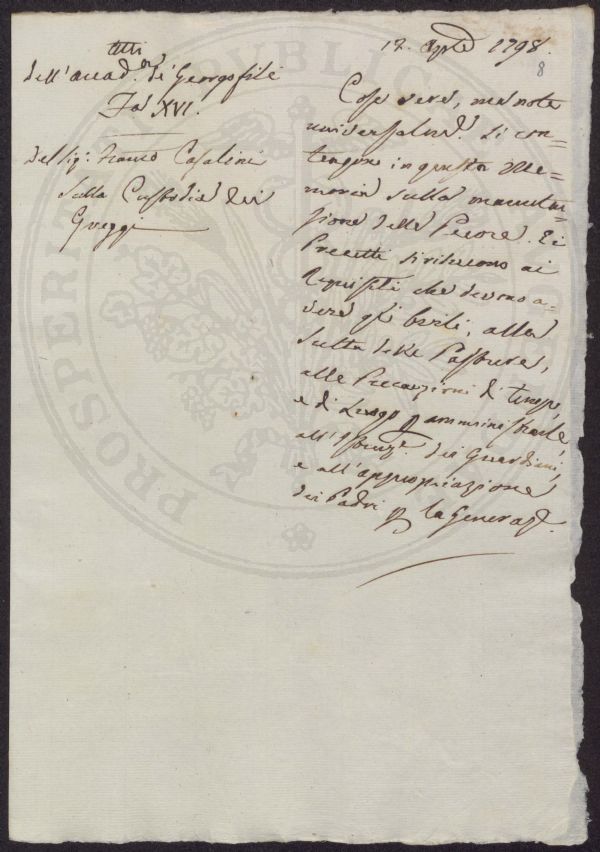 Atti
dell'accad.ª de' Georgofili
Fas XVI.
Del Sig: Franco Casalini
Sulla Custodia dei
Greggi
12 1798.
8
Cose vere, ma note
universalm.e si con=
tengono in questa Me=
moria sulla manuten=
zione delle Pecore. Ei
Precetti si riducono ai
Requisiti che devono a=
vere gli Ovili, alla
scelta delle Pasture,
alle Precauzioni di tempo,
e di Luogo p amministrarle,
dei Guardiani,
e all'appropriazione
dei Padri p la Generaze.
PROSPERITÀ PUBBLICA